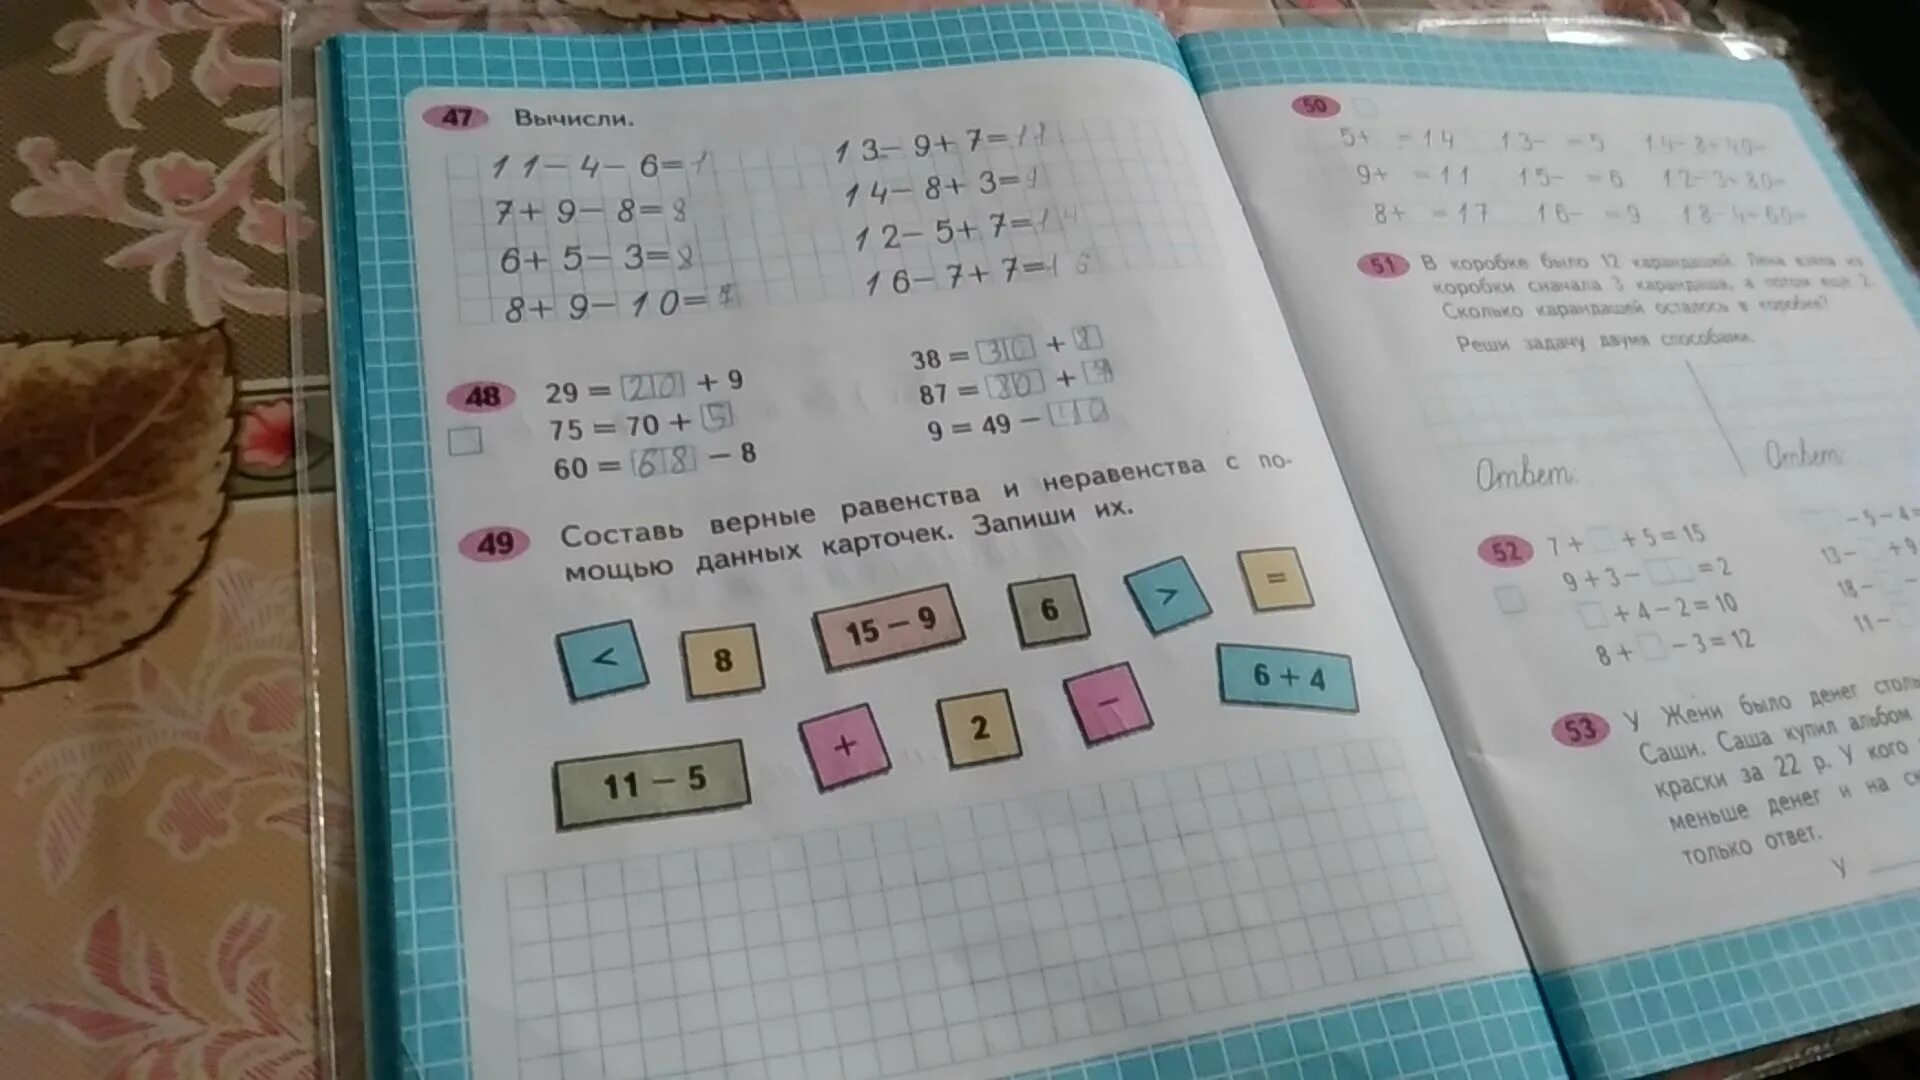 47 Вычисли.
11-4-6=1
7+9-8=8
6+5-3=8
8+9-10=
13-9+7=11
14-8+3=9
12-5+7=14
16-7+7=16
48 29 = 20 + 9
75 = 70 + 5
60 = 68 - 8
38 = 30 + 8
87 = 80 +
9 = 49 - 40
49 Составь верные равенства и неравенства с по-
мощью данных карточек. Запиши их.
< 8 15 - 9 6 > =
11 - 5 + 2 - 6 + 4
50
5+ =14 13- =5 14-8+40=
9+ =11 15- =6 12-3+80=
8+ =17 16- =9 18-4+60=
51 В коробке было 12 карандашей. Лена взяла из
коробки сначала 3 карандаша, а потом ещё 2.
Сколько карандашей осталось в коробке?
Реши задачу двумя способами.
Ответ: Ответ:
52 7 + + 5 = 15
9 + 3 - = 2
+ 4 - 2 = 10
8 + - 3 = 12
- 5 - 4 =
13 - + 9
18 - -
11 -
53 У Жени было денег столь
Саши. Саша купил альбом
краски за 22 р. У кого
меньше денег и на ск
только ответ.
У